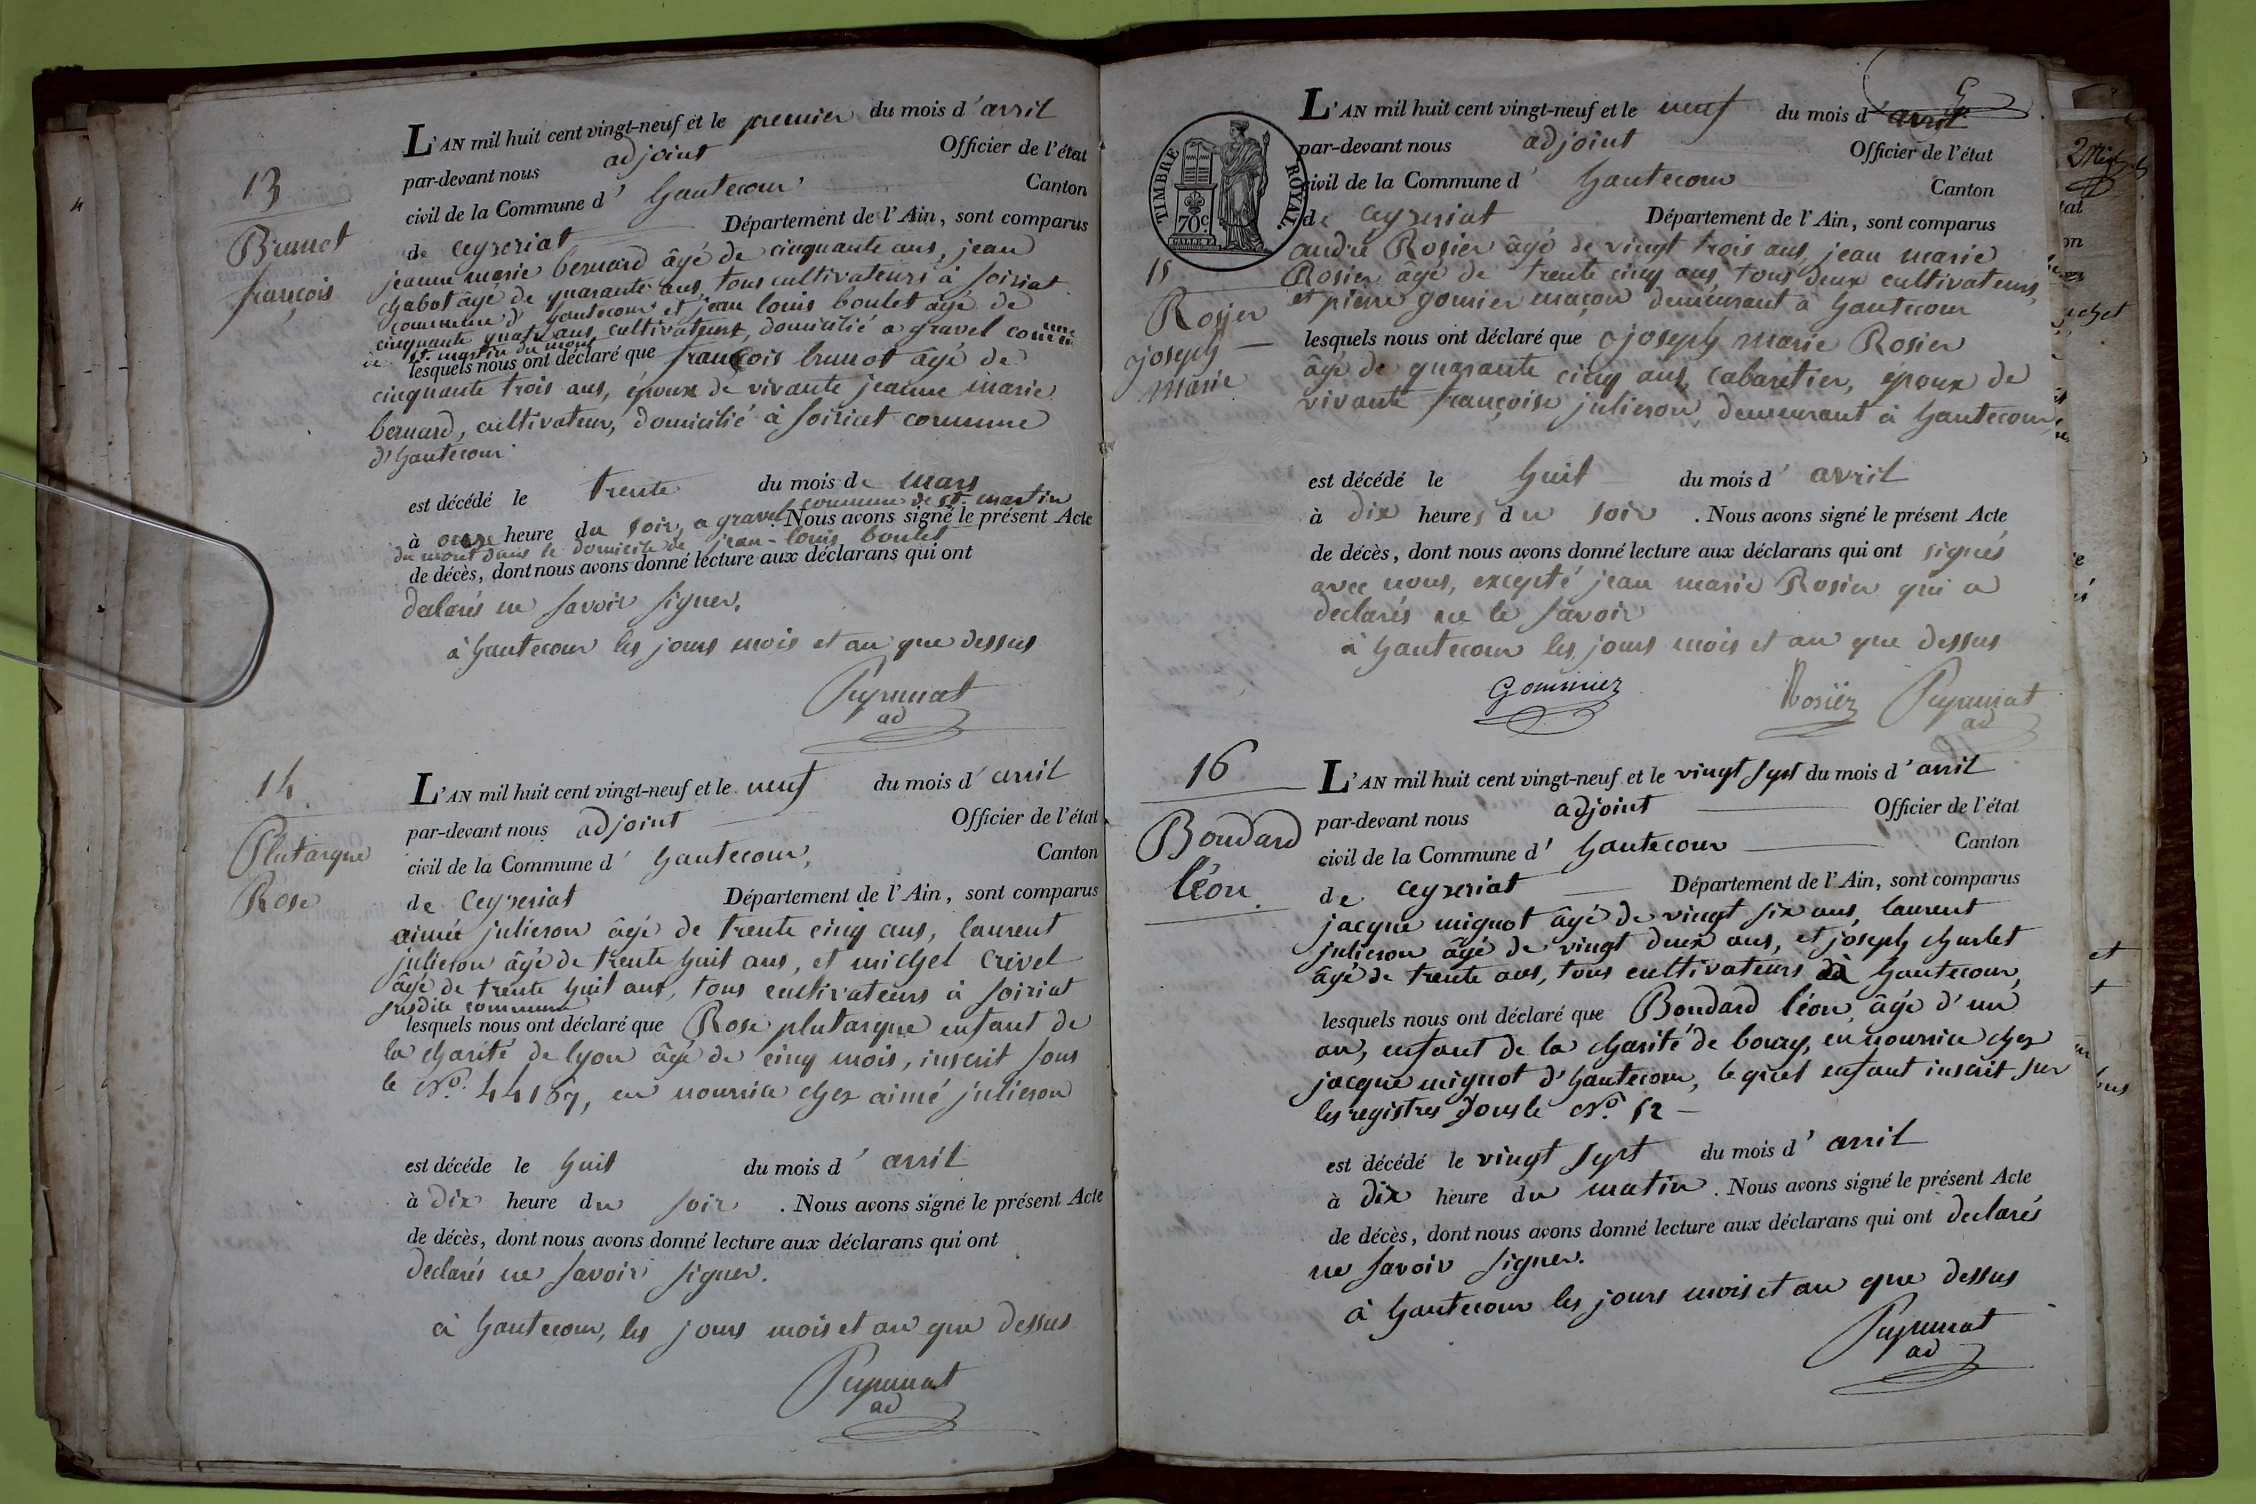 13
Brunet
françois
L'AN mil huit cent vingt-neuf et le premier du mois d'avril
par-devant nous adjoint Officier de l'état
civil de la Commune d'hautecour Canton
de ceyseriat Département de l'Ain, sont comparus
jeanne marie bernard âgé de cinquante ans, jean
chabot âgé de quarante ans, tous cultivateurs à soiriat
commune d'hautecour et jean louis boulet age de
cinquante quatre ans cultivateurs, domicilié a gravel comune
de st. martin du mont
lesquels nous ont déclaré que françois brunot âgé de
cinquante trois ans, époux de vivante jeanne marie
bernard, cultivateur, domicilié à soiriat commune
d'hautecour
est décédé le trente du mois de mars
à onze heure du soir, a gravel commune de st. martin
. Nous avons signé le présent Acte
du mont dans le domicile de jean-louis boulet
de décès, dont nous avons donné lecture aux déclarans qui ont
declarés ne savoir signer.
à hautecour les jours mois et an que dessus
ad
14
Plutarque
Rose
L'AN mil huit cent vingt-neuf et le neuf du mois d'avril
par-devant nous adjoint Officier de l'état
civil de la Commune d'hautecour, Canton
de Ceyseriat Département de l'Ain, sont comparus
aimée julieron âgé de trente cinq ans, laurent
julieron âgé de trente huit ans, et michel crivel
âgé de trente huit ans, tous cultivateurs à soiriat
susdite commune
lesquels nous ont déclaré que Rose plutarque enfant de
la charité de lyon âgé de cinq mois, inscrit sous
le No. 44189, en nourrice chez aimé julieron
est décéde le huit du mois d'avril
à dix heure du soir . Nous avons signé le présent Acte
de décès, dont nous avons donné lecture aux déclarans qui ont
declarés ne savoir signer.
à hautecour, les jours mois et an que dessus
ad
5
TIMBRE ROYAL.
70c.
15
Rosier
joseph
marie
L'AN mil huit cent vingt-neuf et le neuf du mois d'avril
par-devant nous adjoint Officier de l'état
civil de la Commune d'hautecour Canton
de ceyseriat Département de l'Ain, sont comparus
andré Rosier âgé de vingt trois ans, jean marie
Rosier agé de trente cinq ans tous deux cultivateurs,
et pierre gomier maçon demeurant à hautecour
lesquels nous ont déclaré que joseph marie Rosier
âgé de quarante cinq ans, cabaretier, époux de
vivante françoise julieron, demeurant à hautecour,
est décédé le huit du mois d'avril
à dix heures du soir . Nous avons signé le présent Acte
de décès, dont nous avons donné lecture aux déclarans qui ont signés
avec nous, excepté jean marie Rosier qui a
declarés ne le savoir
à hautecour les jours mois et an que dessus
Gommiez Rosiez
ad
16
Boudard
léon.
L'AN mil huit cent vingt-neuf et le vingt sept du mois d'avril
par-devant nous adjoint Officier de l'état
civil de la Commune d'hautecour Canton
de ceyseriat Département de l'Ain, sont comparus
jacque mignot âgé de vingt six ans, laurent
julieron âgé de vingt deux ans, et joseph charlet
âgé de trente ans, tous cultivateurs à hautecour,
lesquels nous ont déclaré que Boudard léon, âgé d'un
an, enfant de la charité de bourg, en nourrice chez
jacque mignot d'hautecour, lequel enfant inscrit sur
les registres sous le No. 52
est décédé le vingt sept du mois d'avril
à dix heure du matin . Nous avons signé le présent Acte
de décès, dont nous avons donné lecture aux déclarans qui ont declarés
ne savoir signer.
à hautecour les jours mois et an que dessus
ad